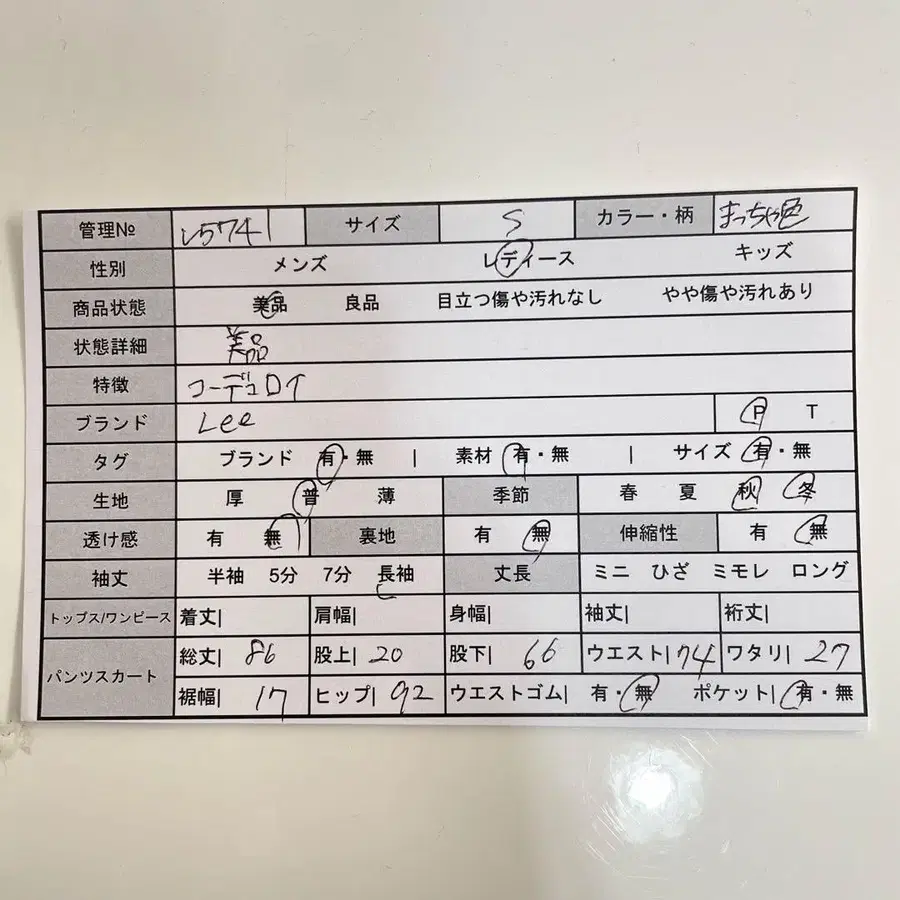 管理№ い5741 サイズ S カラー・柄 まっちゃ色
性別 メンズ レディース キッズ
商品状態 美品 良品 目立つ傷や汚れなし やや傷や汚れあり
状態詳細 美品
特徴 コーデュロイ
ブランド Lee P T
タグ ブランド 有・無 | 素材 有・無 | サイズ 有・無
生地 厚 普 薄 季節 春 夏 秋 冬
透け感 有 無 裏地 有 無 伸縮性 有 無
袖丈 半袖 5分 7分 長袖 丈長 ミニ ひざ ミモレ ロング
トップス/ワンピース 着丈| 肩幅| 身幅| 袖丈| 裄丈|
パンツスカート 総丈| 86 股上| 20 股下| 66 ウエスト| 74 ワタリ| 27
裾幅| 17 ヒップ| 92 ウエストゴム| 有・無 ポケット| 有・無